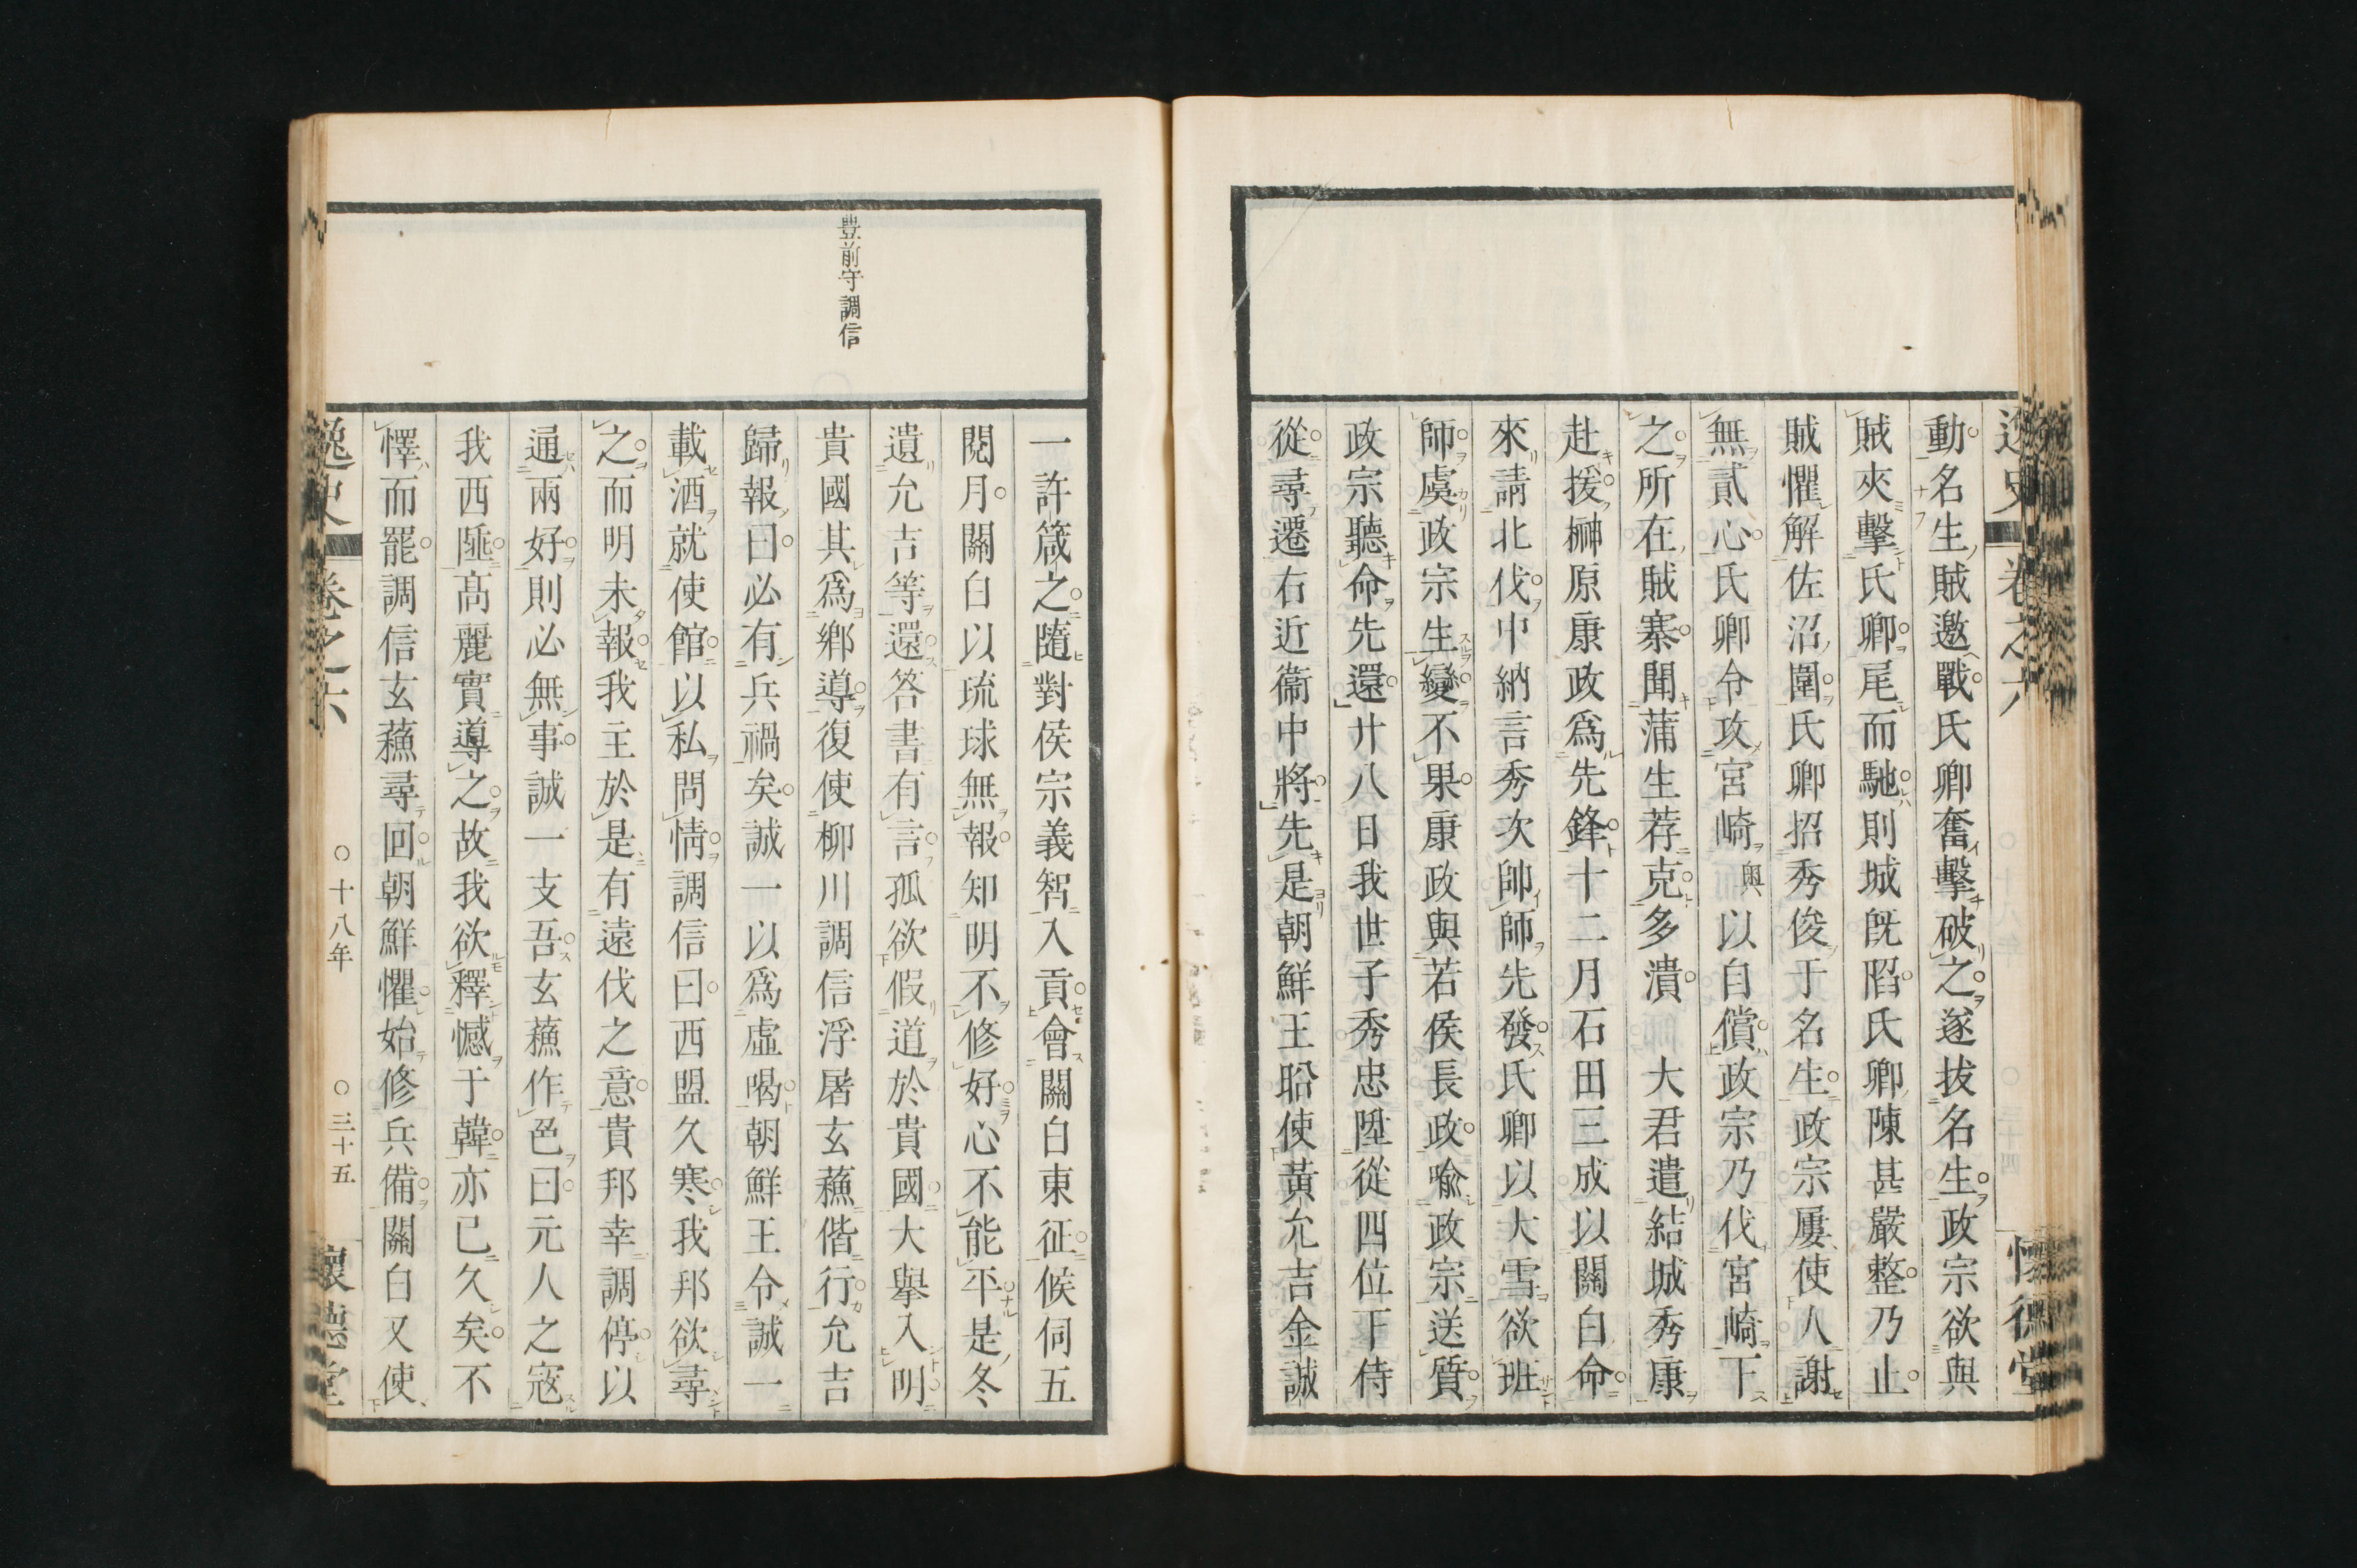 逸史 卷之六 懷德堂
動名生賊邀戰氏卿奮擊破之遂拔名生政宗欲與
賊夾擊氏卿尾而馳則城既陷氏卿陳甚嚴整乃止
賊懼解佐沼圍氏卿招秀俊于名生政宗屢使人謝
無貳心氏卿令攻宮崎輿以自償政宗乃伐宮崎下
之所在賊寨聞蒲生荐克多潰 大君遣結城秀康
赴援榊原康政爲先鋒十二月石田三成以關白命
來請北伐中納言秀次帥師先發氏卿以大雪欲班
師虞政宗生變不果康政與若侯長政喻政宗送質
政宗聽命先還廿八日我世子秀忠陞從四位下侍
從尋遷右近衞中將先是朝鮮王昭使黃允吉金誠
豐前守調信
一許箴之隨對侯宗義智入貢會關白東征候伺五
閱月關白以琉球無報知明不修好心不能平是冬
遺允吉等還答書有言孤欲假道於貴國大擧入明
貴國其爲鄕導復使柳川調信浮屠玄蘓偕行允吉
歸報曰必有兵禍矣誠一以爲虛喝朝鮮王令誠一
載酒就使館以私問情調信曰西盟久寒我邦欲尋
之而明未報我主於是有遠伐之意貴邦幸調停以
通兩好則必無事誠一支吾玄蘓作色曰元人之寇
我西陲高麗實導之故我欲釋憾于韓亦已久矣不
懌而罷調信玄蘓尋回朝鮮懼始修兵備關白又使
逸史 卷之六 ○十八年 ○三十五 懷德堂